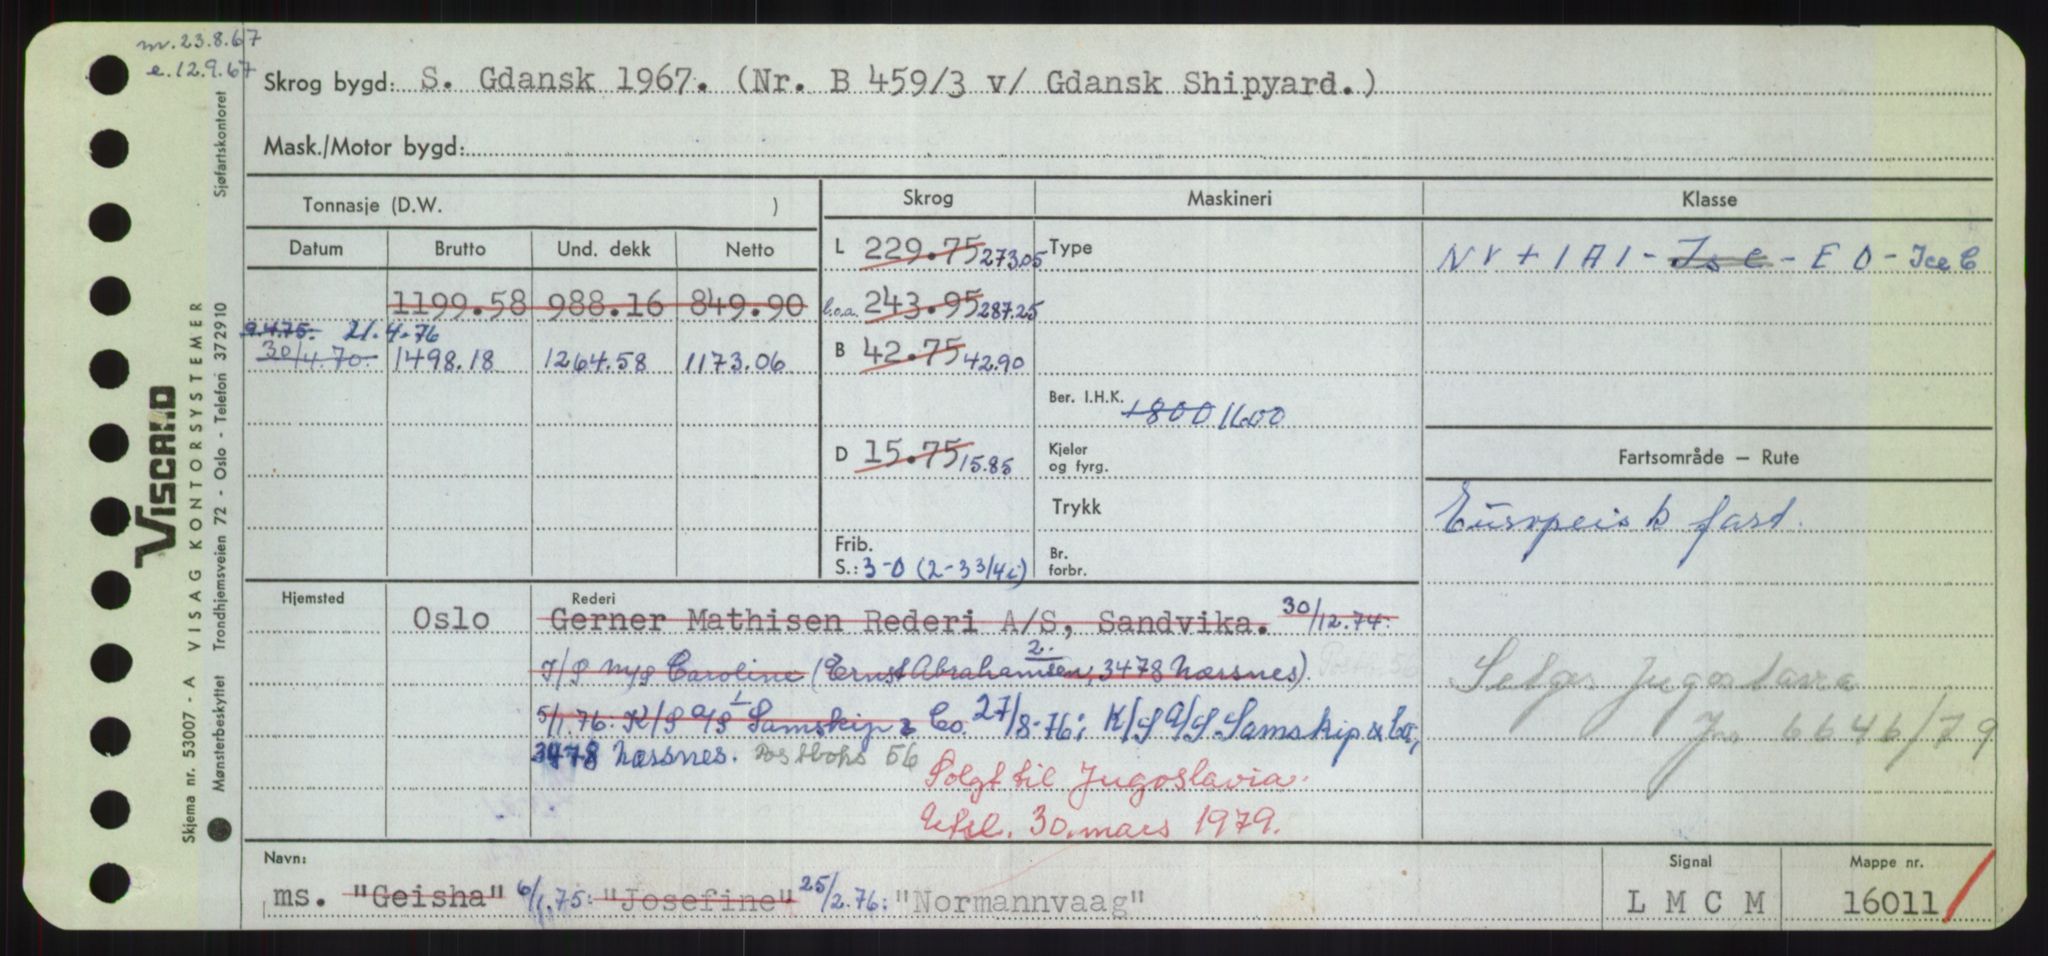 m. 23.8.67
e. 12.9.67
Skrog bygd: S. Gdansk 1967. (Nr. B 459/3 v/ Gdansk Shipyard.)
Mask./Motor bygd:
Tonnasje (D.W. )
Datum Brutto Und. dekk Netto
1199.58 988.16 849.90
9.4.75. 21.4.76
30/4.70. 1498.18 1264.58 1173.06
Skrog
L 229.75 273.05
l.o.a. 243.95 287.25
B 42.75 42.90
D 15.75 15.85
Frib.
S.: 3-0 (2-3 3/4 i)
Maskineri
Type
Ber. I.H.K. 1800 1600
Kjeler
og fyrg.
Trykk
Br.
forbr.
Klasse
NV + 1A1 - Is C - E 0 - Ice C
Fartsområde — Rute
Europeisk fart.
Selges Jugoslavia
Jnr 6646/79
Hjemsted Oslo
Rederi
Gerner Mathisen Rederi A/S, Sandvika. 30/12.74:
I/S M/S Caroline (Ernst Abrahamsen, 3478 Nærsnes). Postb 56
2.
5/1.76: K/S A/S Samskip & Co. 27/8-76: K/S A/S Samskip & Co.,
3478 Nærsnes. Postboks 56
Solgt til Jugoslavia.
Utsl. 30. mars 1979.
Navn:
ms. "Geisha" 6/1.75: "Josefine" 25/2.76: "Normannvaag"
Signal
L M C M
Mappe nr.
16011
VISCARD
VISAG KONTORSYSTEMER
Skjema nr. 53007 - A
Mønsterbeskyttet Trondhjemsveien 72 - Oslo - Telefon 372910 Sjøfartskontoret